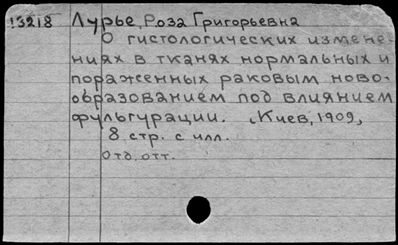 13218 Лурье, Роза Григорьевна
О гистологических измене-
ниях в тканях нормальных и
пораженных раковым ново-
образованием под влиянием
фульгурации. [Киев, 1909]
8 стр. с илл.
Отд. отт.